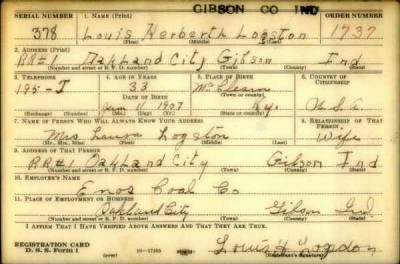 GIBSON CO IND
SERIAL NUMBER 1. NAME (Print) ORDER NUMBER
378 Louis Herberth Logston 1737
(First) (Middle) (Last)
2. ADDRESS (Print)
RR#1 Oakland City Gibson Ind
(Number and street or R. F. D. number) (Town) (County) (State)
3. TELEPHONE 4. AGE IN YEARS 5. PLACE OF BIRTH 6. COUNTRY OF CITIZENSHIP
195-J 33 McClearn
DATE OF BIRTH (Town or county)
Jan 11 1907 Ky. U.S.A.
(Exchange) (Number) (Mo.) (Day) (Yr.) (State or country)
7. NAME OF PERSON WHO WILL ALWAYS KNOW YOUR ADDRESS 8. RELATIONSHIP OF THAT PERSON
Mrs. Laura Logston Wife
(Mr., Mrs., Miss) (First) (Middle) (Last)
9. ADDRESS OF THAT PERSON
RR#1 Oakland City Gibson Ind
(Number and street or R. F. D. number) (Town) (County) (State)
10. EMPLOYER'S NAME
Enos Coal Co
11. PLACE OF EMPLOYMENT OR BUSINESS
Oakland City Gibson Ind
(Number and street or R. F. D. number) (Town) (County) (State)
I AFFIRM THAT I HAVE VERIFIED ABOVE ANSWERS AND THAT THEY ARE TRUE.
REGISTRATION CARD
D. S. S. Form 1 (over) 16-17105 Louis H Logsdon
(Registrant's signature)